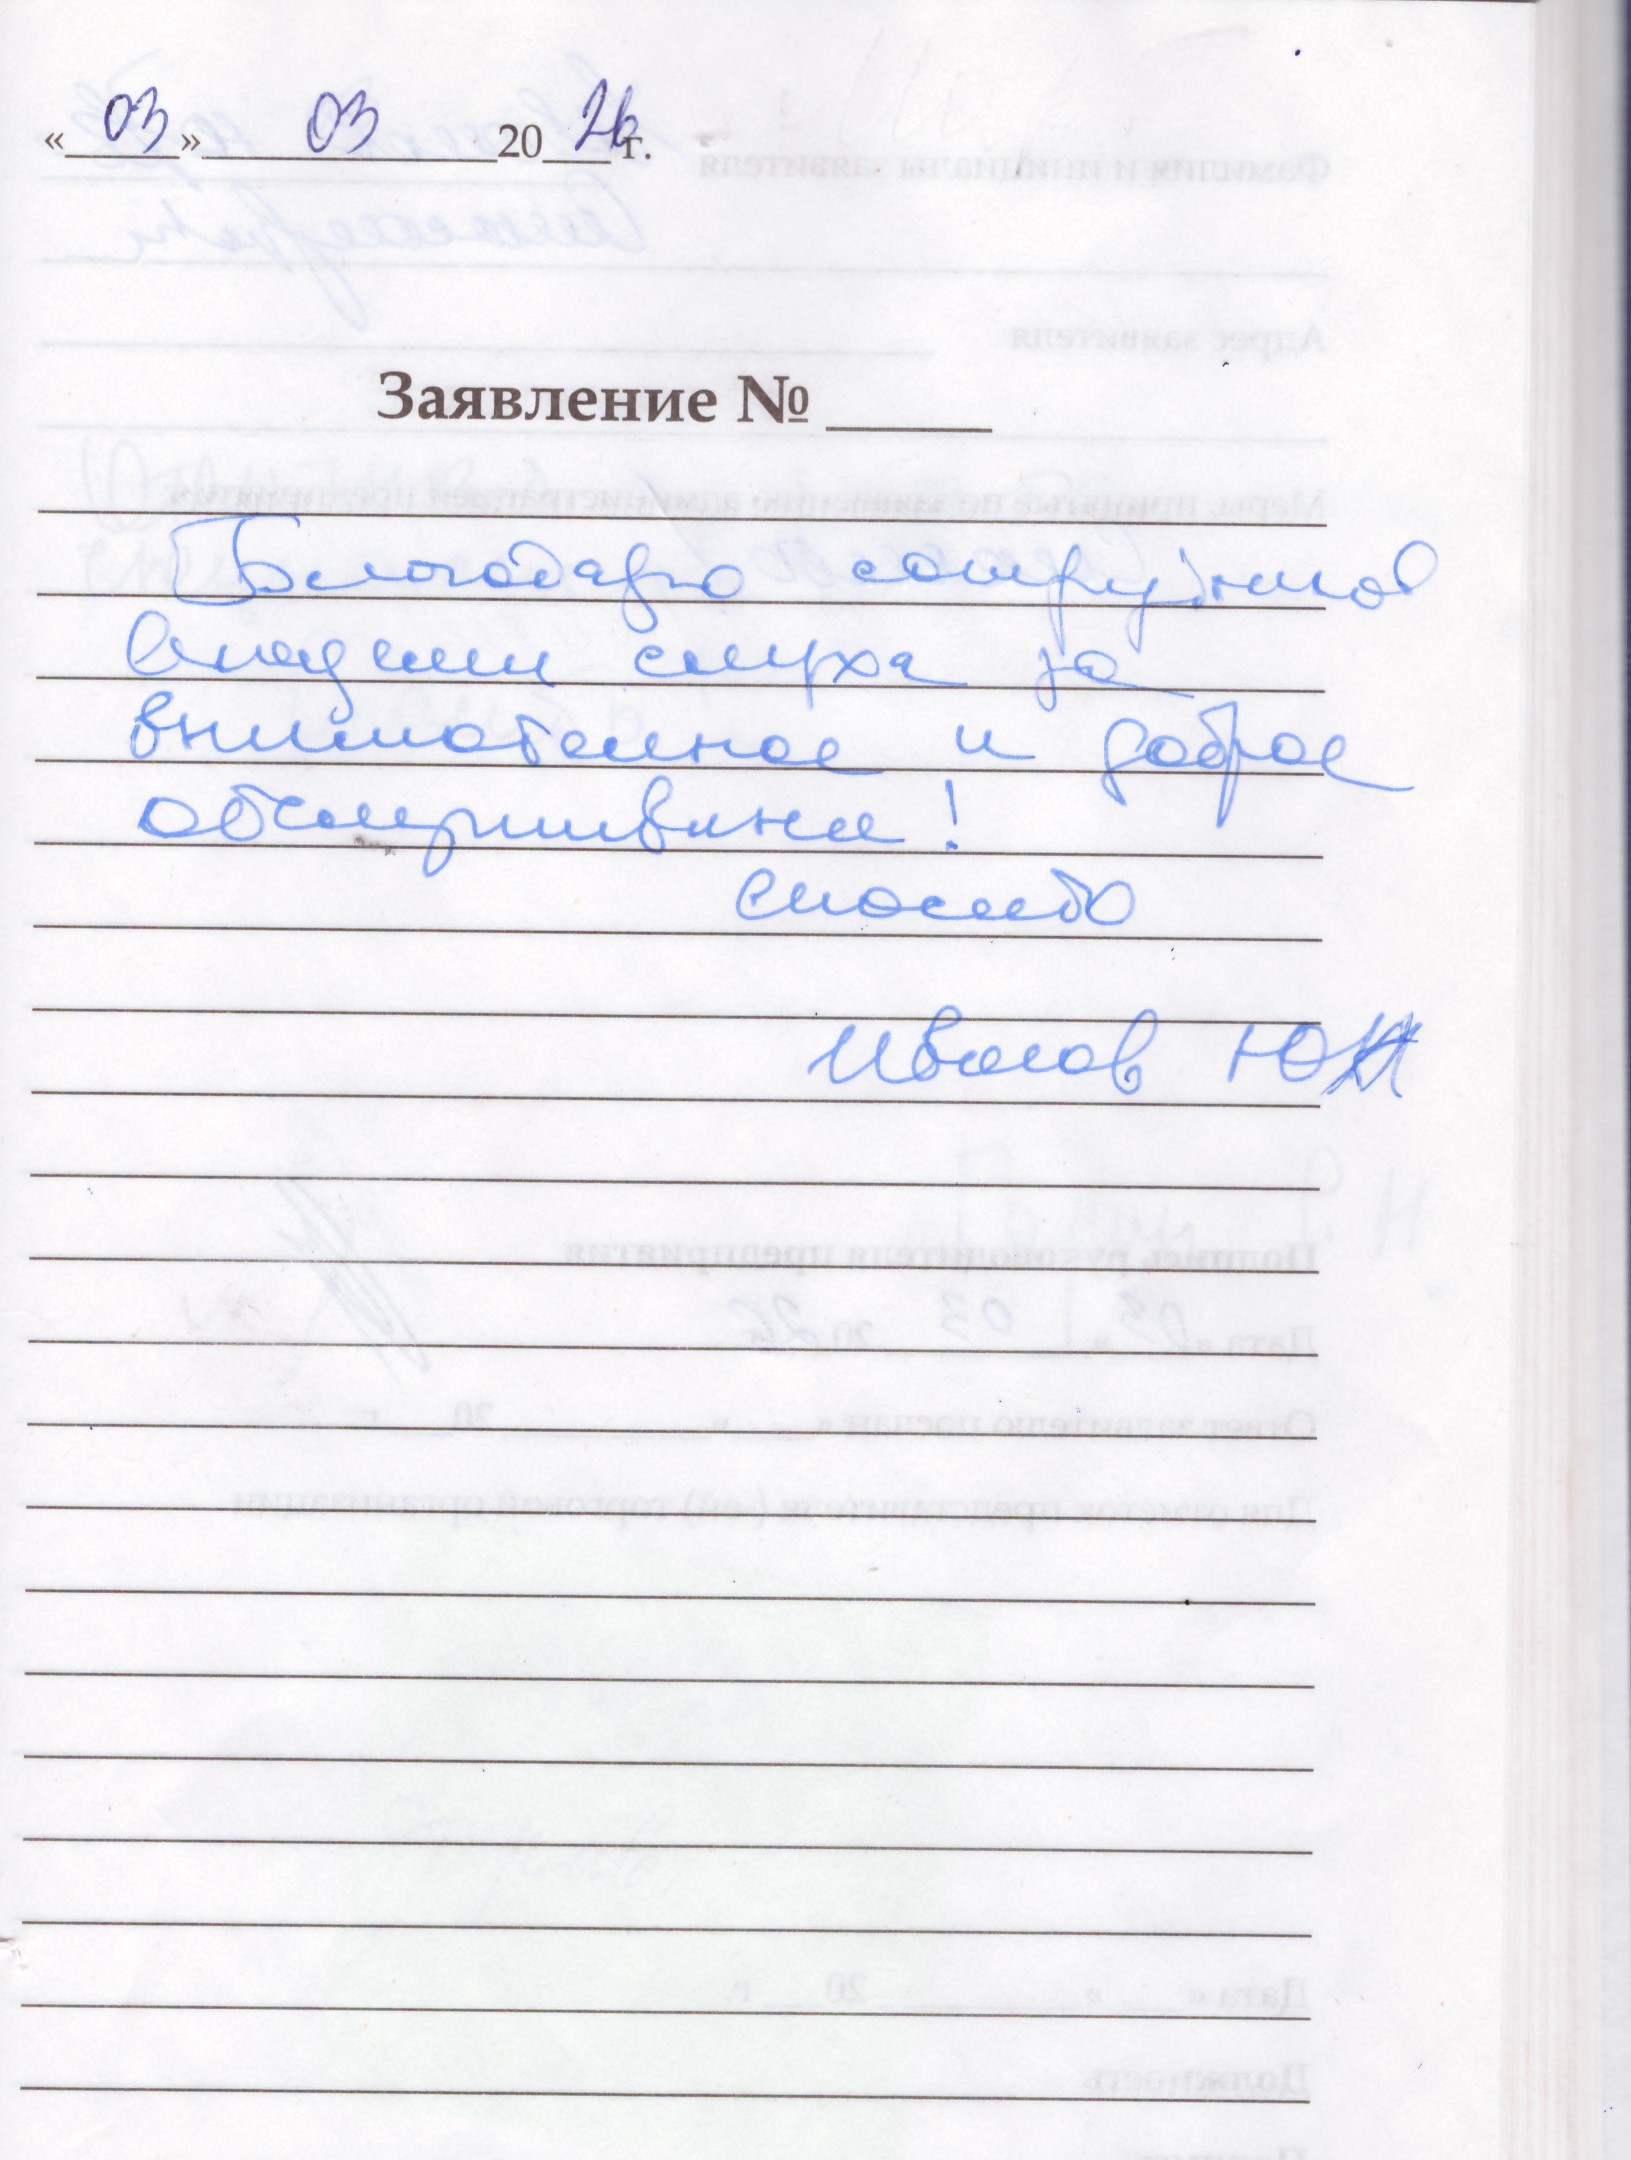 «03» 03 2026 г.
Заявление №
Благодарю сотрудников
Академии слуха за
внимательное и доброе
обслуживание!
Спасибо
Ю